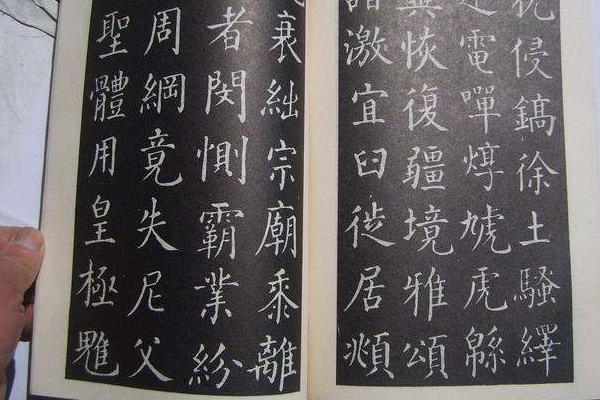 侵鎬徐土騷繹
電嘽焞虓虎緜
恢復疆境雅頌
激宜臼徙居頫
衰絀宗廟黍離
者閔惻霸業紛
周綱竟失尼父
聖體用皇極